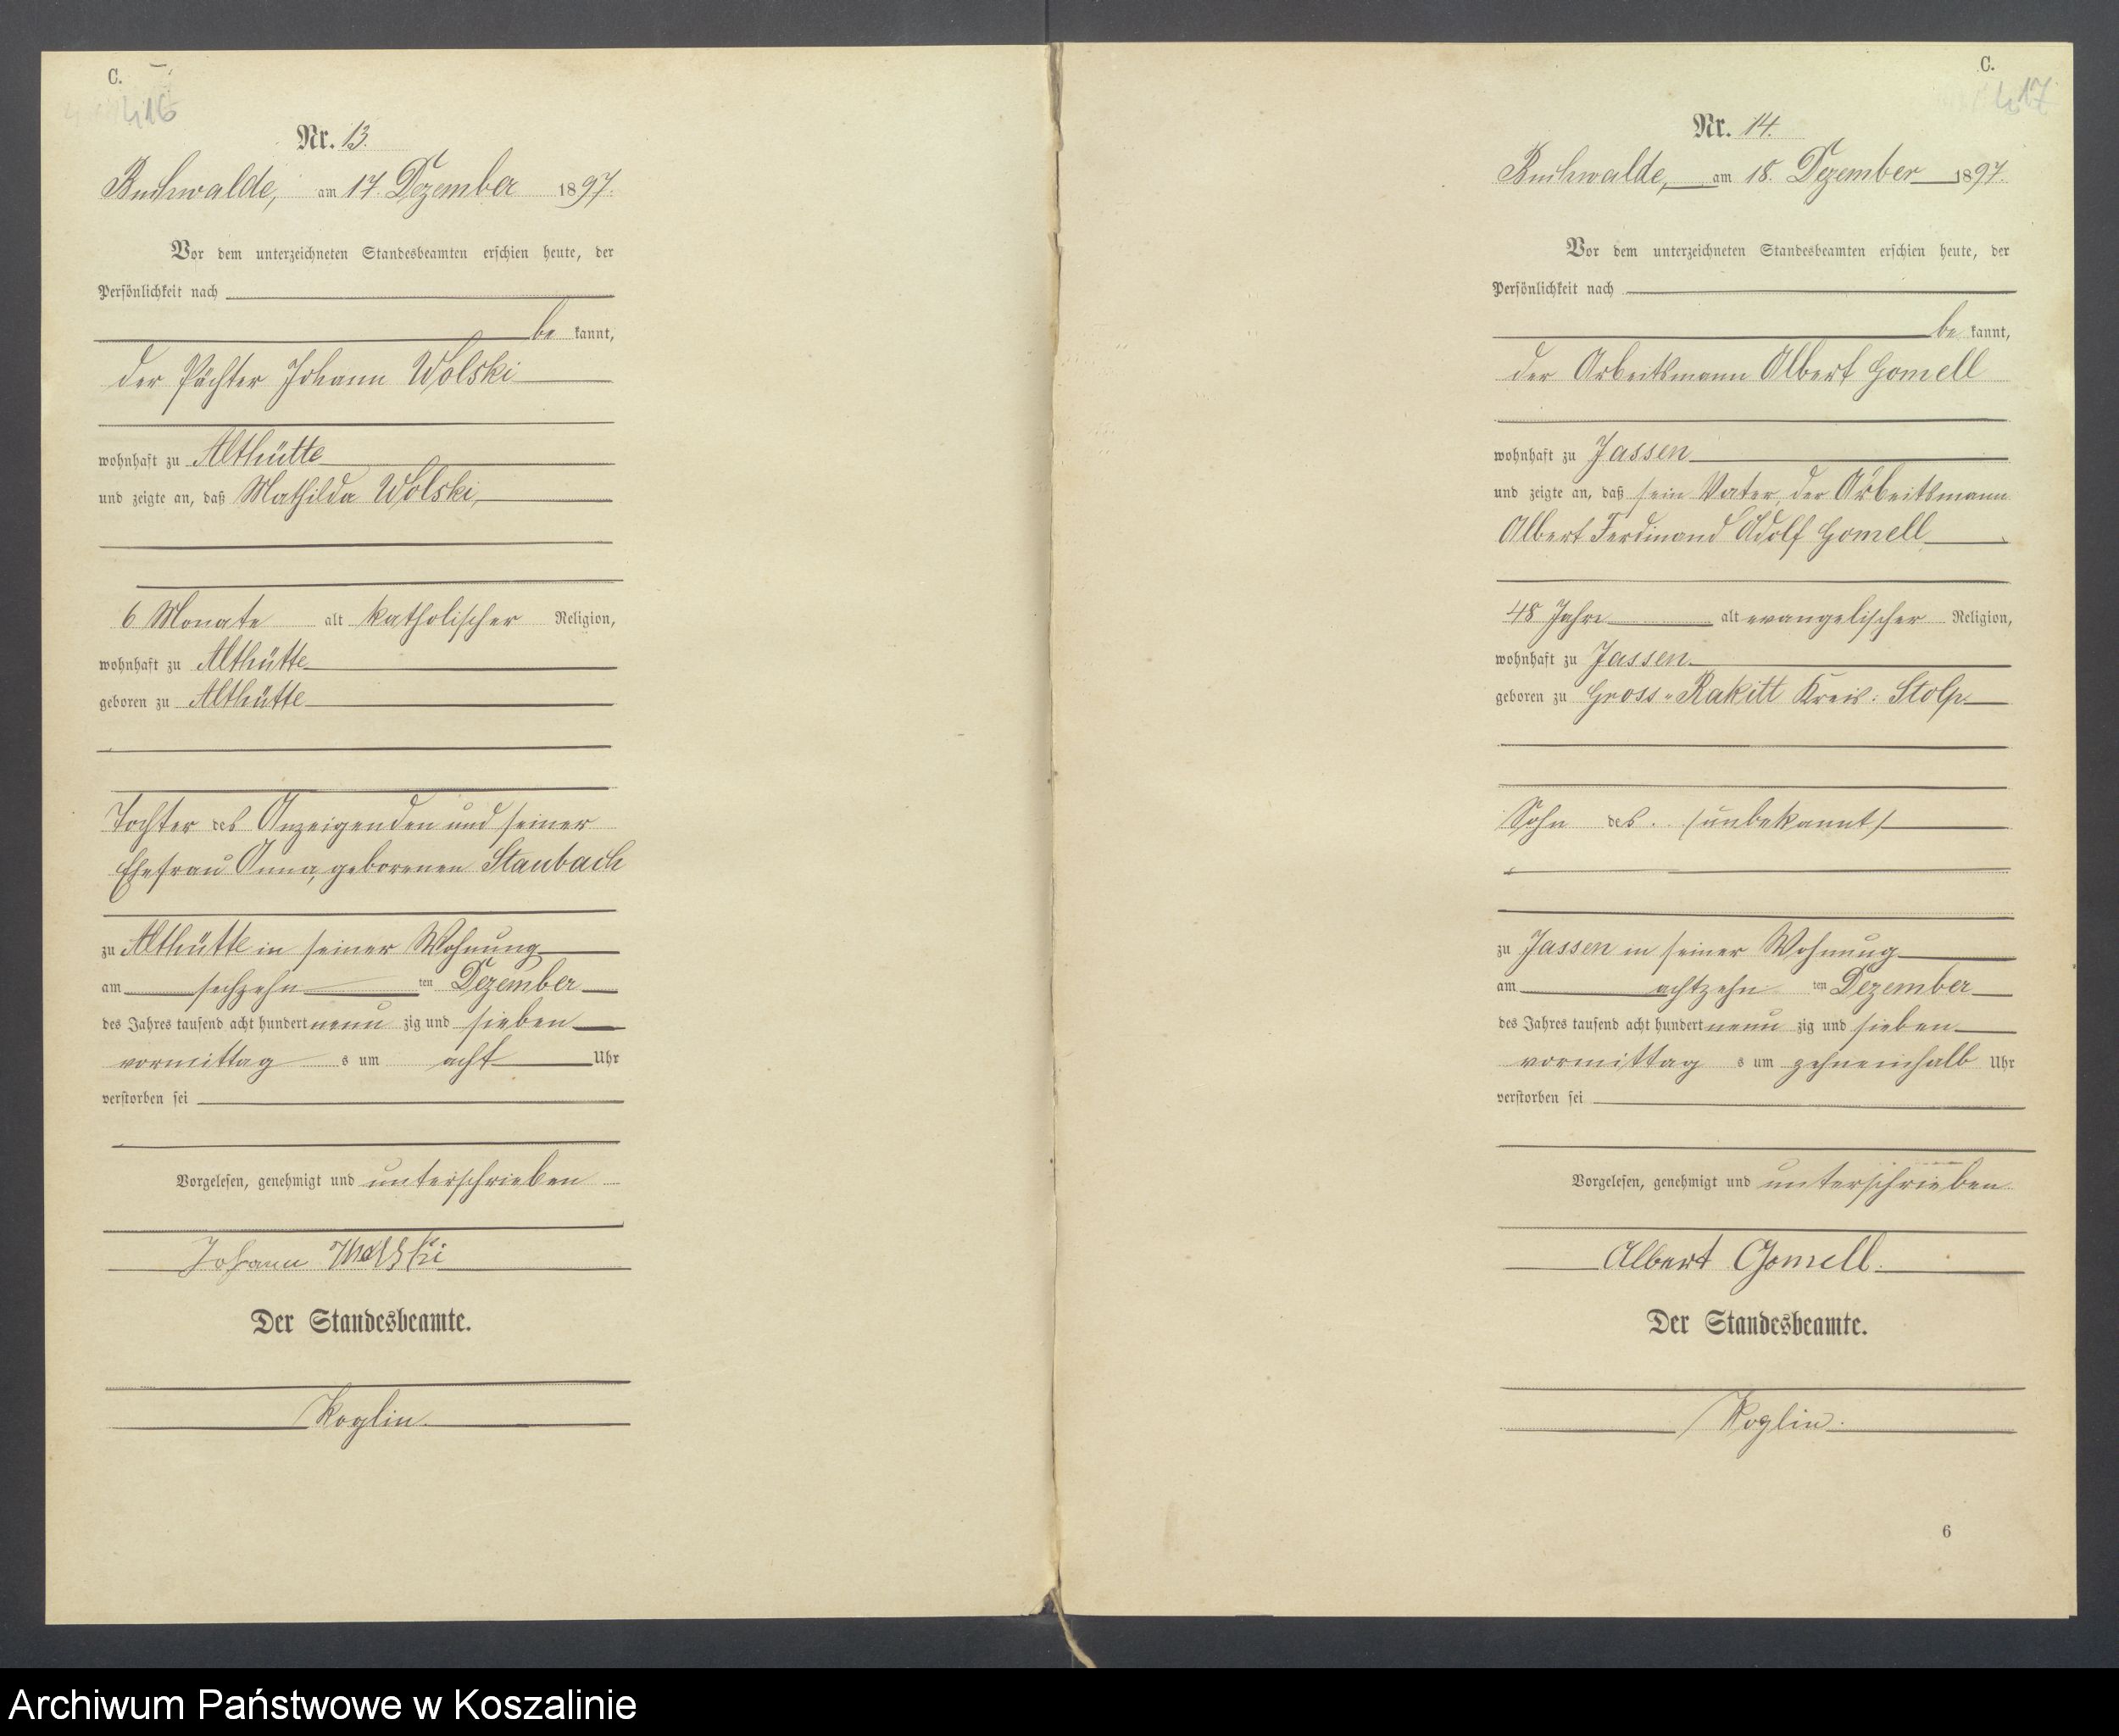 C.
416
Nr. 13.
Buchwalde, am 17. Dezember 1897.
Vor dem unterzeichneten Standesbeamten erschien heute, der
Persönlichkeit nach
be kannt,
der Pächter Johann Wolski
wohnhaft zu Althütte
und zeigte an, daß Mathilda Wolski,
6 Monate alt katholischer Religion,
wohnhaft zu Althütte
geboren zu Althütte
Tochter des Anzeigenden und seiner
Ehefrau Anna, geborenen Staubach
zu Althütte in seiner Wohnung
am sechzehn ten Dezember
des Jahres tausend acht hundert neun zig und sieben
vormittag s um acht Uhr
verstorben sei
Vorgelesen, genehmigt und unterschrieben
Johann Wolski
Der Standesbeamte.
Koglin.
C.
417
Nr. 14.
Buchwalde, am 18. Dezember 1897.
Vor dem unterzeichneten Standesbeamten erschien heute, der
Persönlichkeit nach
be kannt,
der Arbeitsmann Albert Gomell
wohnhaft zu Jassen
und zeigte an, daß sein Vater, der Arbeitsmann
Albert Ferdinand Adolf Gomell
48 Jahre alt evangelischer Religion,
wohnhaft zu Jassen
geboren zu Gross-Rakitt Kreis: Stolp
Sohn des (unbekannt)
zu Jassen in seiner Wohnung
am achtzehn ten Dezember
des Jahres tausend acht hundert neun zig und sieben
vormittag s um zehneinhalb Uhr
verstorben sei
Vorgelesen, genehmigt und unterschrieben
Albert Gomell.
Der Standesbeamte.
Koglin.
6
Archiwum Państwowe w Koszalinie